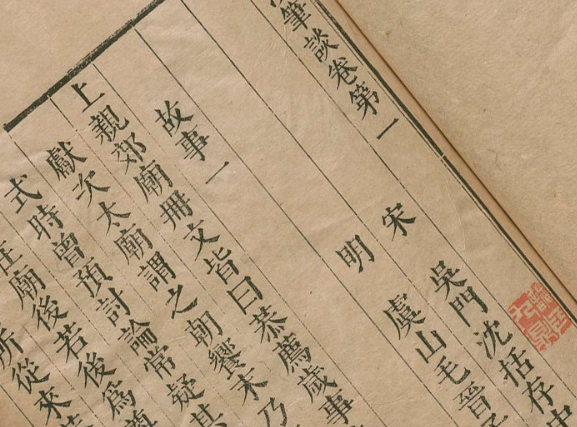 筆談卷第一
宋 吳門沈括存中
明 虞山毛晉
故事一
上親郊廟冊文皆曰恭薦歲事
獻次太廟謂之朝饗末乃
式時曾預討論常疑其
在廟後若後為
所從來